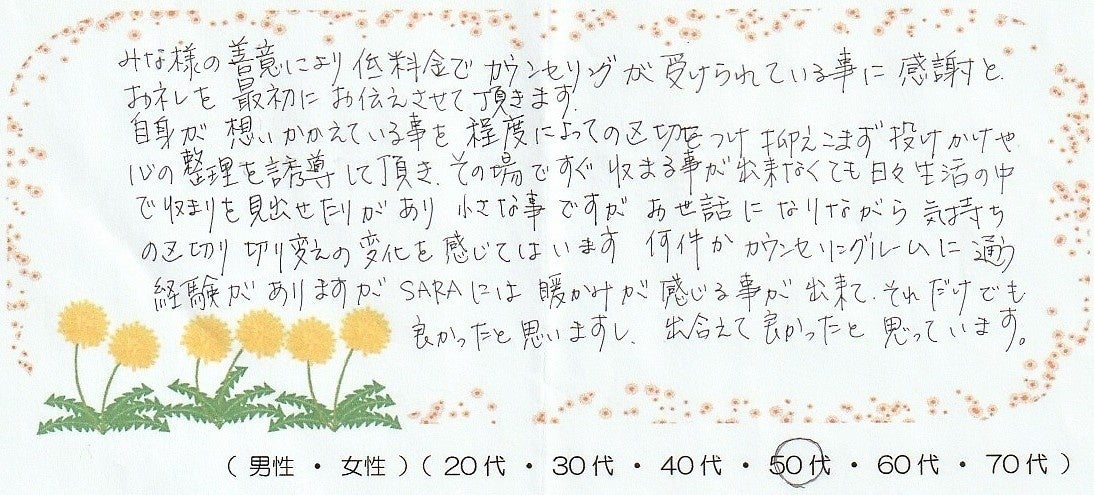 みな様の善意により低料金でカウンセリングが受けられている事に感謝と.
お礼を最初にお伝えさせて頂きます.
自身が想いかかえている事を程度によっての区切をつけ抑えこまず投げかけや
心の整理を誘導して頂き、その場ですぐ収まる事が出来なくても日々生活の中
で収まりを見出せたりがあり小さな事ですがお世話になりながら気持ち
の区切り切り変えの変化を感じてはいます 何件かカウンセリングルームに通う
経験がありますがSARAには暖かみが感じる事が出来て、それだけでも
良かったと思いますし、出合えて良かったと思っています。
（男性・女性）（20代・30代・40代・50代・60代・70代）